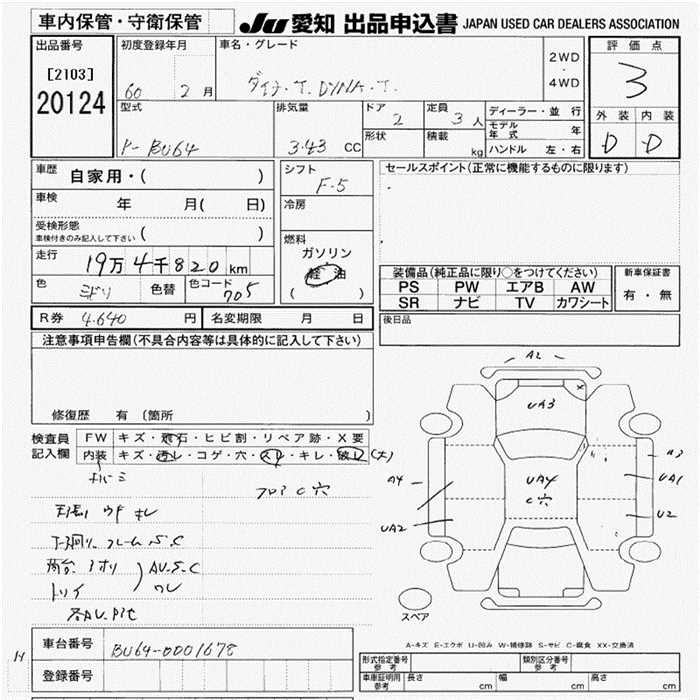 車内保管・守衛保管
JU 愛知 出品申込書 JAPAN USED CAR DEALERS ASSOCIATION
出品番号
[2103]
20124
初度登録年月
60 2 月
車名・グレード
ダイナ・T. DYNA・T.
2WD
・
4WD
評価点
3
外装 内装
D D
型式
P-BU64
排気量
3.43 CC
ドア
2
定員
3 人
形状
積載
kg
ディーラー・並 行
モデル年式 年
ハンドル 左・右
車歴
自家用・( )
車検
年 月( 日)
受検形態
車検付きのみ記入して下さい ( )
走行
19万4千820km
色
ミドリ
色替
色コード
705
シフト
F-5
冷房
燃料
ガソリン
軽 油
( )
セールスポイント(正常に機能するものに限ります)
装備品(純正品に限り○をつけてください)
PS PW エアB AW
SR ナビ TV カワシート
新車保証書
有・無
後日品
R券 4.640 円
名変期限 月 日
注意事項申告欄(不具合内容等は具体的に記入して下さい)
修復歴 有 (箇所 )
検査員記入欄
FW キズ・飛石・ヒビ割・リペア跡・X要
内装 キズ・汚レ・コゲ・穴・スレ・キレ・破レ(大)
フロアC穴
下廻リ フレーム S.C
荷台 アオリ AU.S.C
トリイ ワレ
各AU.P他
A2
UA3
UA4
C穴
A4
UA2
A3
UA1
U2
スペア
A-キズ E-エクボ U-凹み W-補修跡 S-サビ C-腐食 XX-交換済
車台番号
BU64-0001678
登録番号
形式指定番号
参考
類別区分番号
参考
車庫証明用
参考
長さ cm
幅 cm
高さ cm